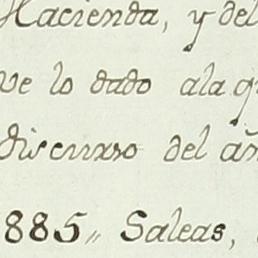 Hacienda, y del
ve lo dado ala q
discurso del añ
1885,, Saleas,